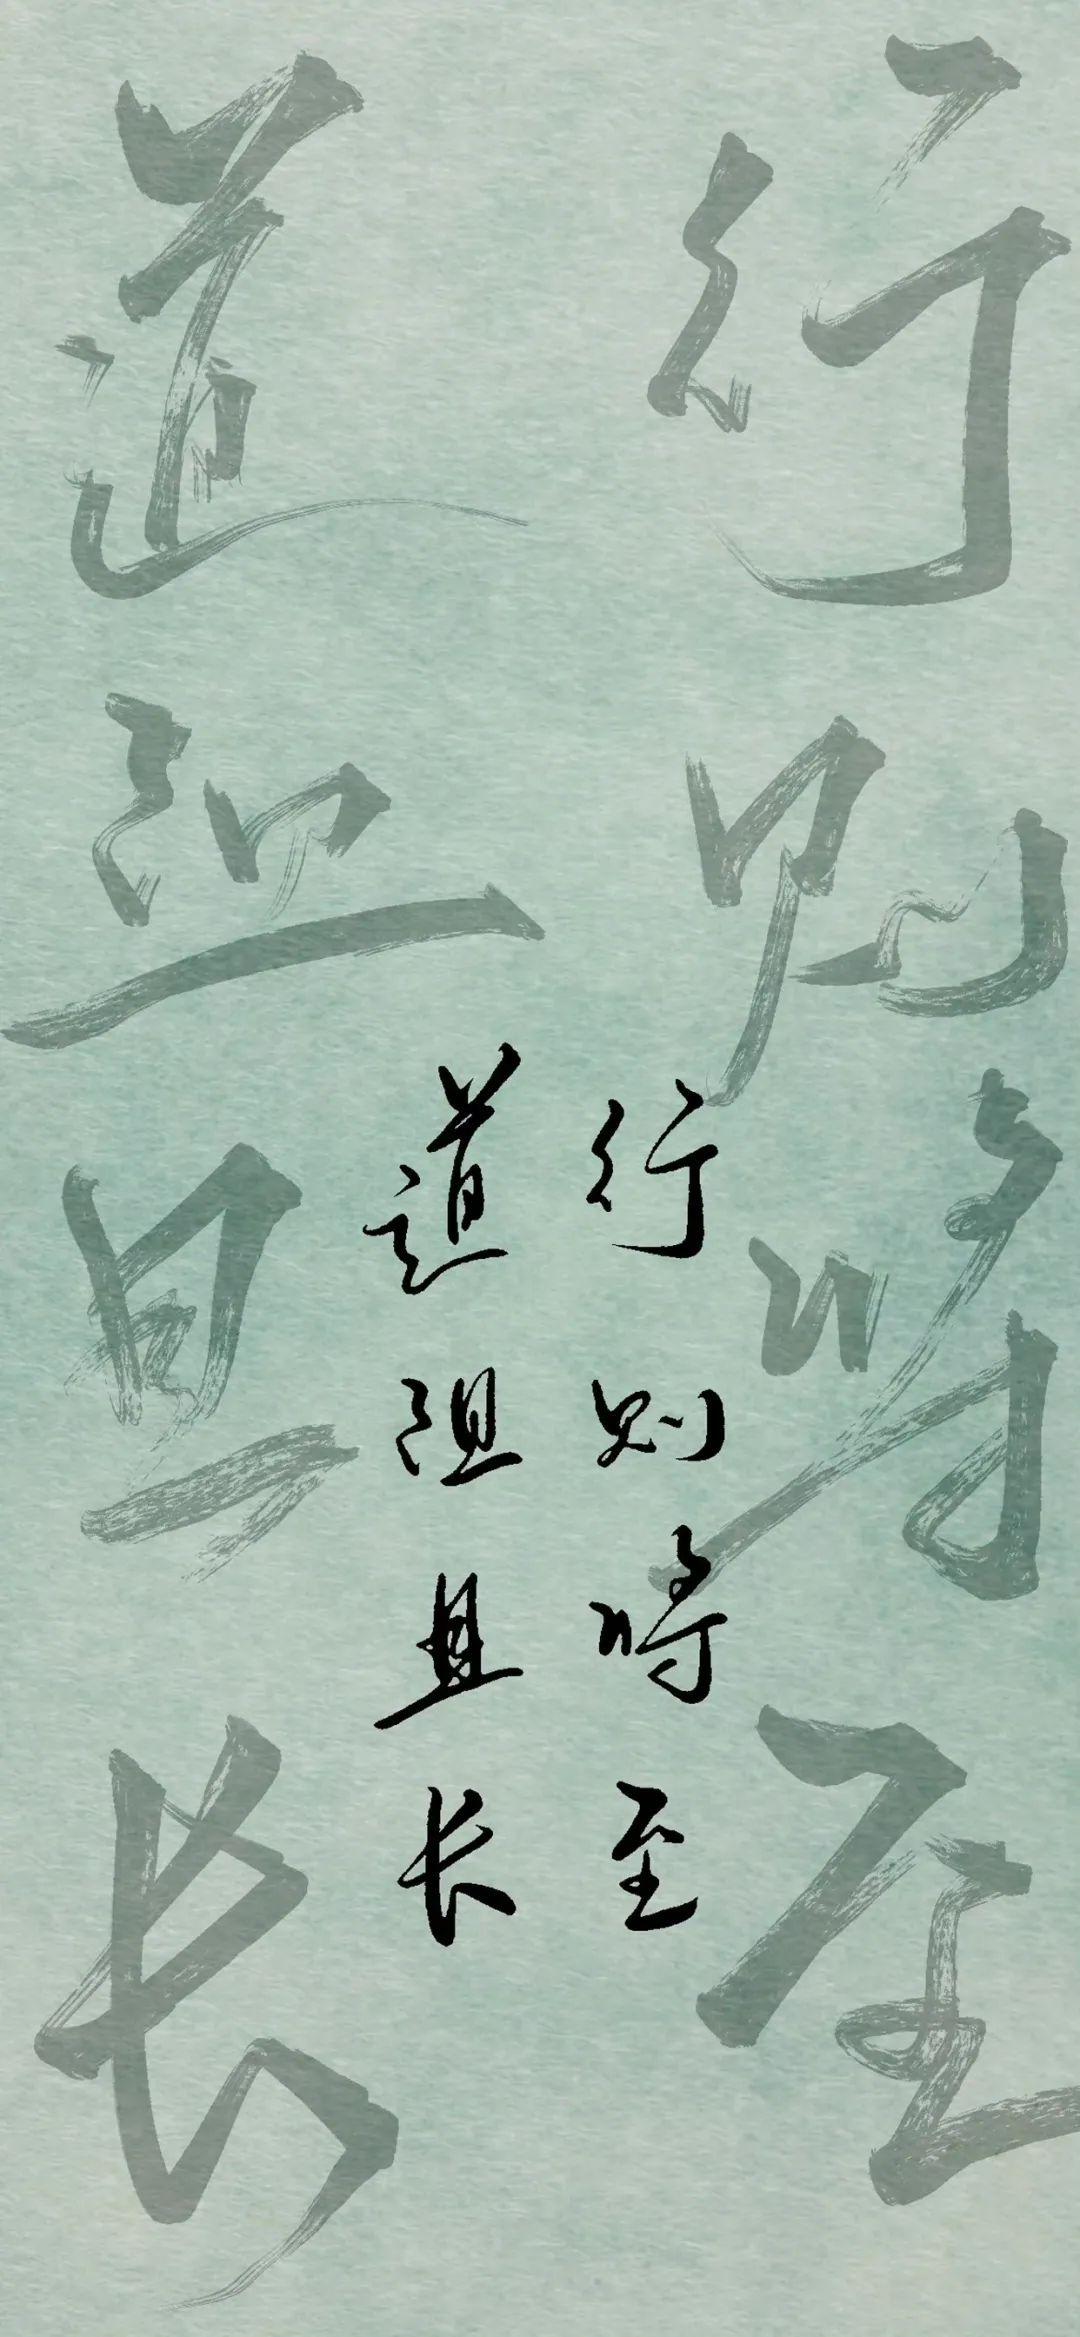 道阻且长
行则将至
道阻且长
行则将至